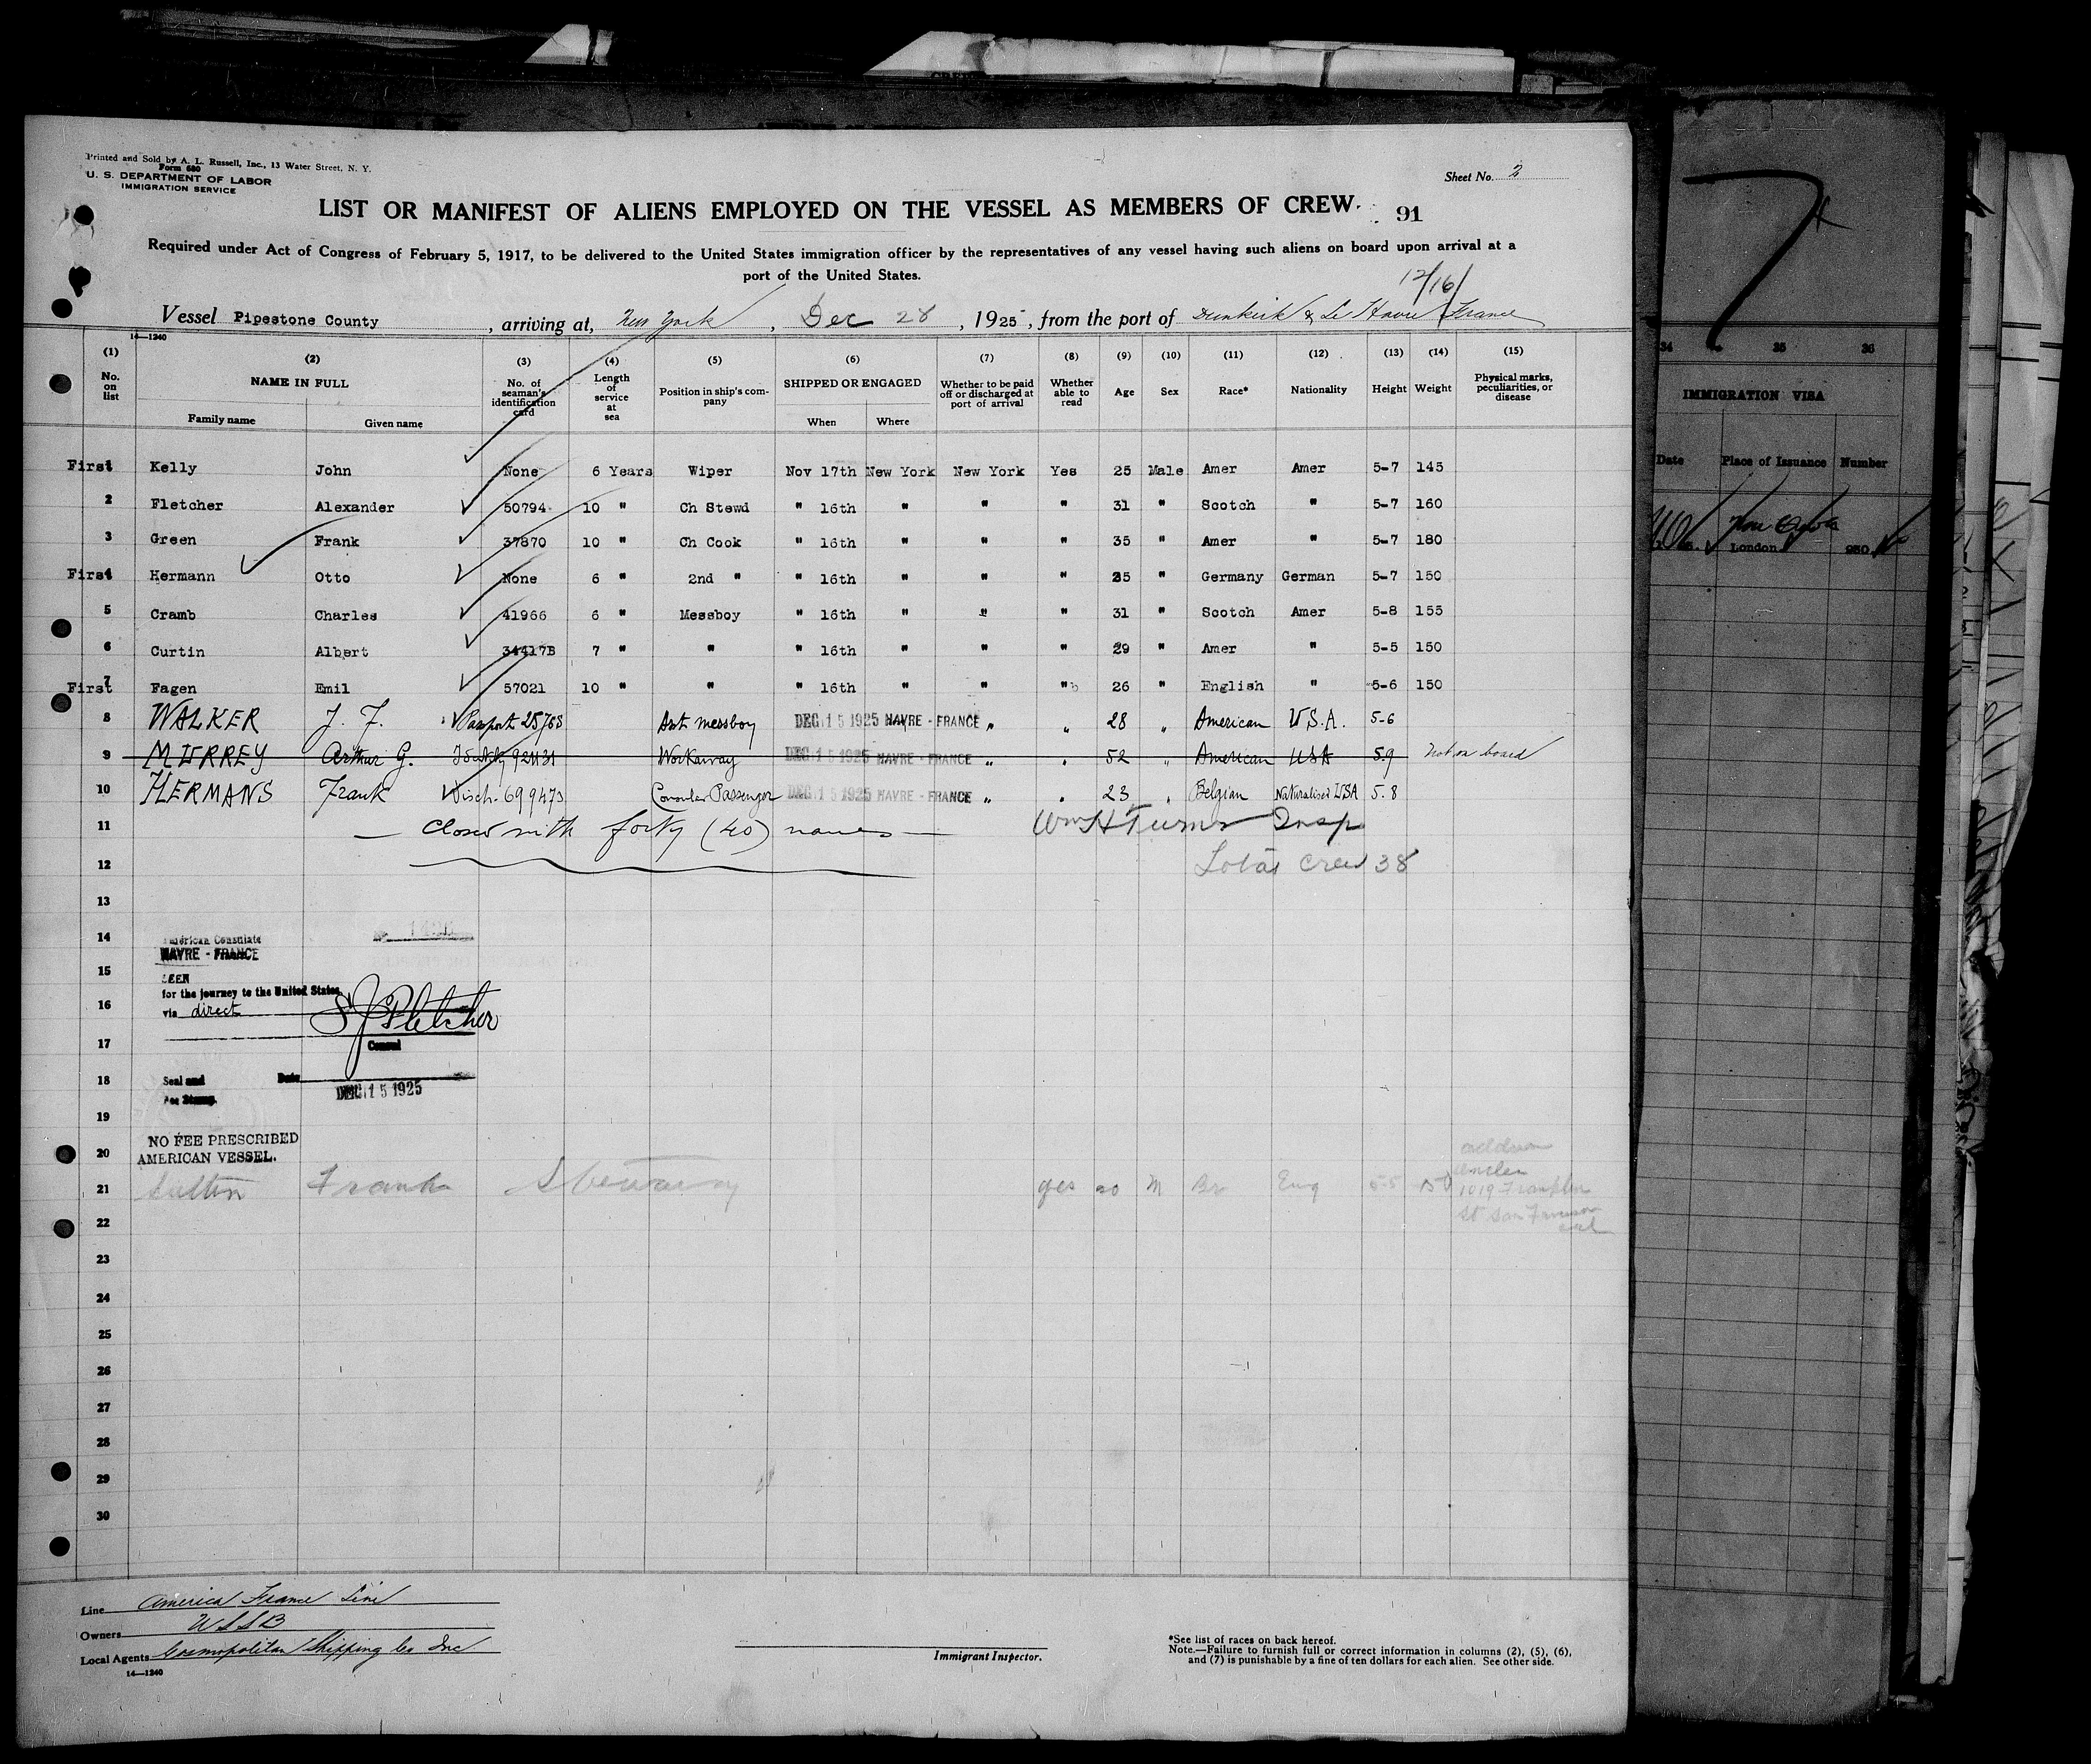 Printed and Sold by A. L. Russell, Inc., 13 Water Street, N. Y.
Form 680
U. S. DEPARTMENT OF LABOR
IMMIGRATION SERVICE
Sheet No. 2
LIST OR MANIFEST OF ALIENS EMPLOYED ON THE VESSEL AS MEMBERS OF CREW.
91
Required under Act of Congress of February 5, 1917, to be delivered to the United States immigration officer by the representatives of any vessel having such aliens on board upon arrival at a
port of the United States.
12/16/
Vessel Pipestone County, arriving at, New York, Dec 28, 1925, from the port of Dunkirk & Le Havre France
14—1240
(1) (2) (3) (4) (5) (6) (7) (8) (9) (10) (11) (12) (13) (14) (15)
No. on list NAME IN FULL Family name Given name No. of seaman's identification card Length of service at sea Position in ship's company SHIPPED OR ENGAGED When Where Whether to be paid off or discharged at port of arrival Whether able to read Age Sex Race* Nationality Height Weight Physical marks, peculiarities, or disease
First 1 Kelly John None 6 Years Wiper Nov 17th New York New York Yes 25 Male Amer Amer 5-7 145
2 Fletcher Alexander 50794 10 " Ch Stewd " 16th " " " 31 " Scotch " 5-7 160
3 Green Frank 37870 10 " Ch Cook " 16th " " " 35 " Amer " 5-7 180
First 4 Hermann Otto None 6 " 2nd " " 16th " " " 25 " Germany German 5-7 150
5 Cramb Charles 41966 6 " Messboy " 16th " " " 31 " Scotch Amer 5-8 155
6 Curtin Albert 34417B 7 " " " 16th " " " 29 " Amer " 5-5 150
First 7 Fagen Emil 57021 10 " " " 16th " " " 26 " English " 5-6 150
8 WALKER J. F. Passport 25768 Ast messboy DEC 15 1925 HAVRE - FRANCE " " 28 " American U.S.A. 5-6
9 MURREY Arthur G. 92431 Workaway DEC 15 1925 HAVRE - FRANCE " " 52 " American USA 5.9 Not on board
10 HERMANS Frank Disch. 699473 Consular Passenger DEC 15 1925 HAVRE - FRANCE " " 23 " Belgian Naturalised USA 5.8
11 — Closed with forty (40) names — Wm H Turner Insp
12 Total Crew 38
13
14
American Consulate
HAVRE - FRANCE
15
SEEN
for the journey to the United States
16
via direct
S J Fletcher
17
Consul
18
Seal and Date
Fee Stamp.
DEC 15 1925
19
NO FEE PRESCRIBED
20
AMERICAN VESSEL.
address
21 Frank Stowaway yes 20 M Br Eng 5-5 150
uncle
1019 Franklin
St San Francisco
cal
22
23
24
25
26
27
28
29
30
Line America France Line
Owners U S S B
Local Agents Cosmopolitan Shipping Co Inc
14—1240
Immigrant Inspector.
*See list of races on back hereof.
Note.—Failure to furnish full or correct information in columns (2), (5), (6),
and (7) is punishable by a fine of ten dollars for each alien. See other side.
34 35 36
IMMIGRATION VISA
Date Place of Issuance Number
London